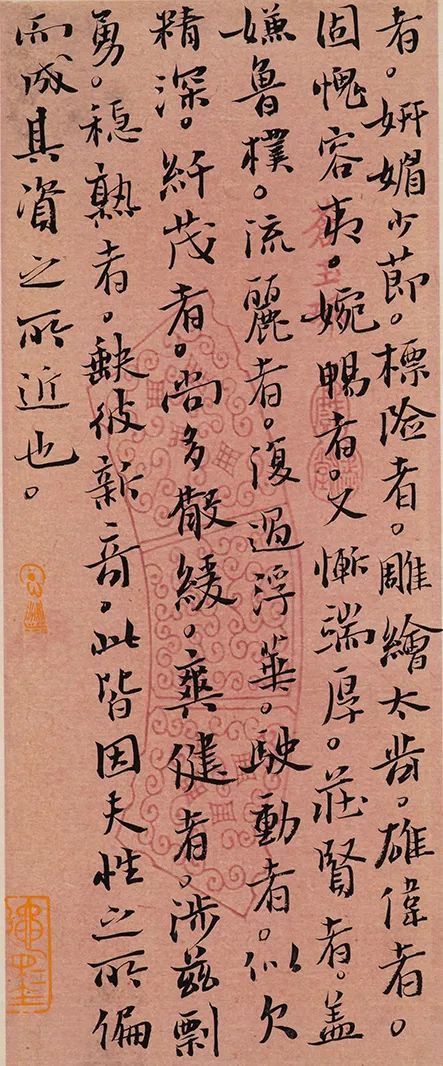 者。妍媚少節。標险者。雕繪太苛。雄偉者。
固愧容夷。婉暢者。又慚端厚。莊賢者。盖
嫌魯樸。流麗者。復過浮華。駛動者。似欠
精深。纖茂者。尚多散緩。爽健者。涉茲剽
勇。穩熟者。缺彼新奇。此皆因夫性之所偏
而成其資之所近也。
蒼玉